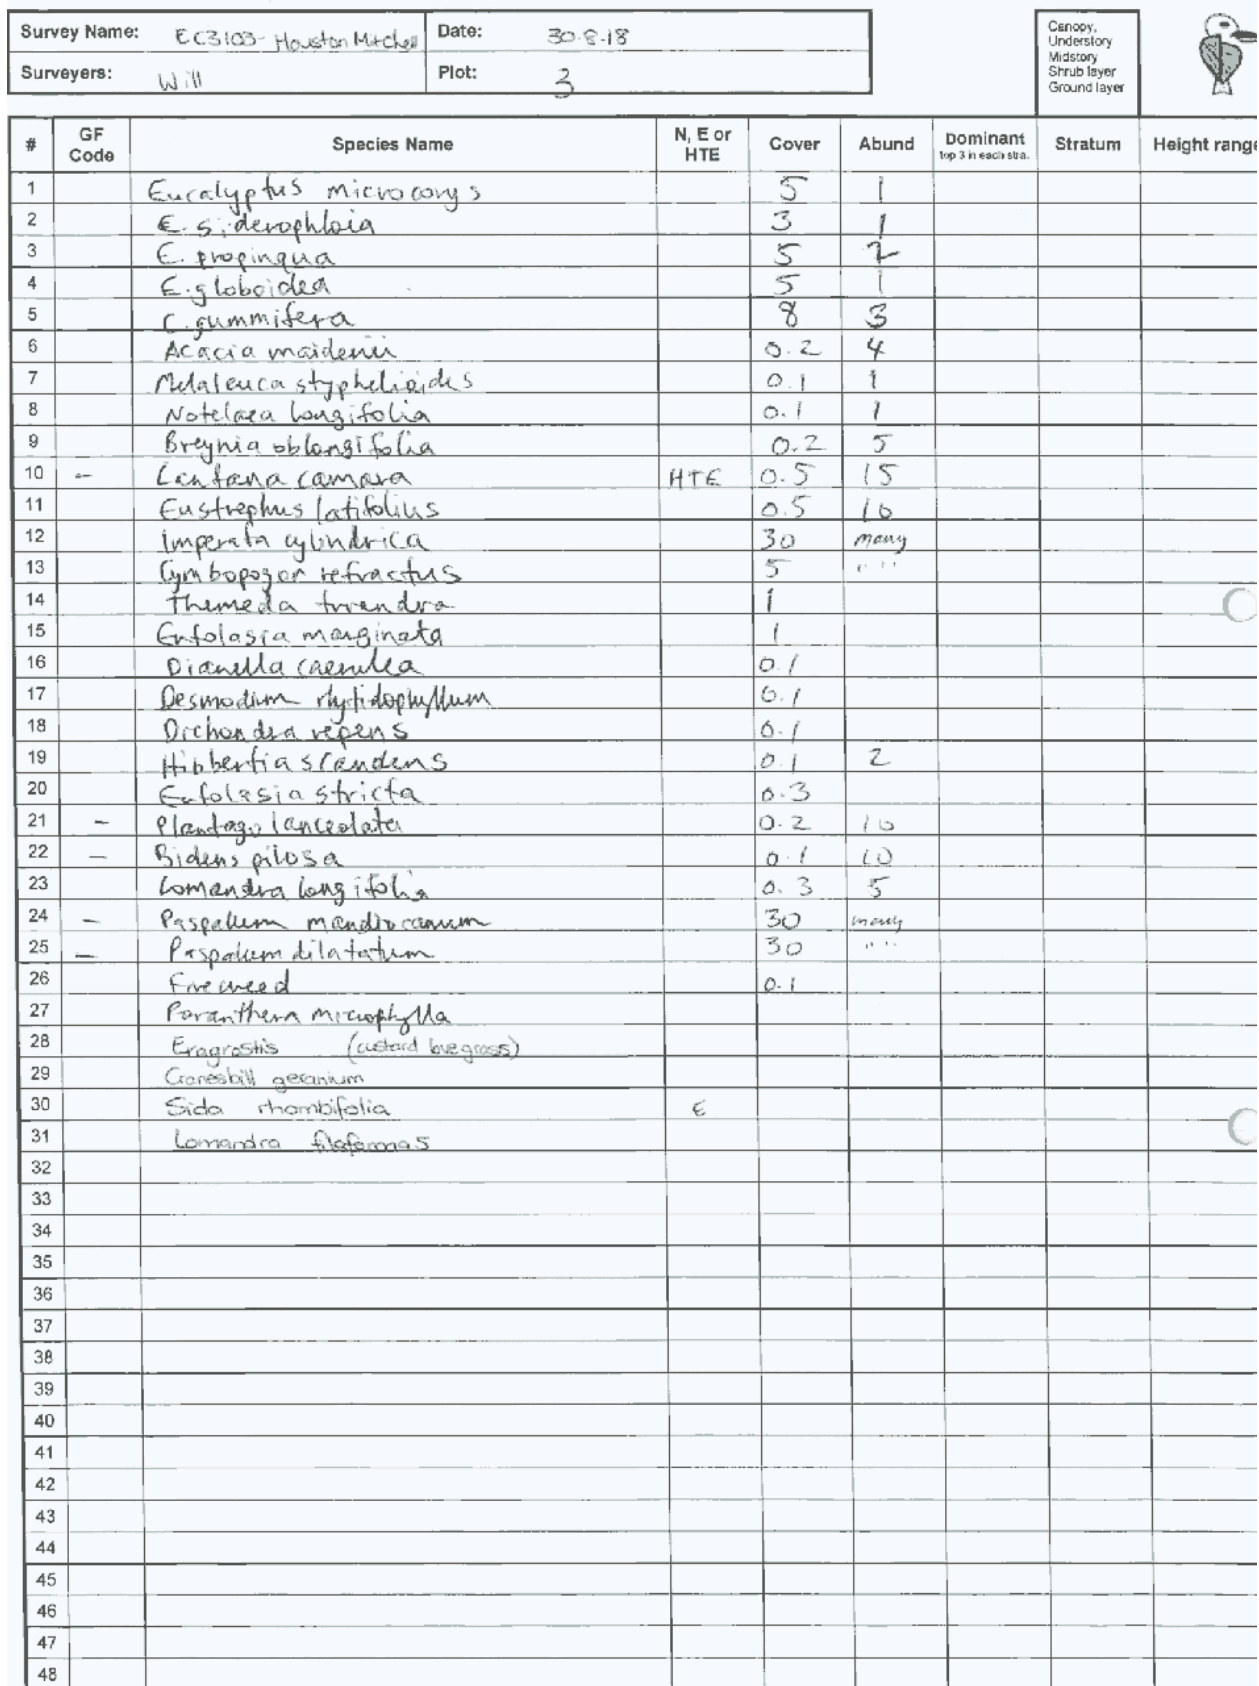 Survey Name: EC3103- Houston Mitchell Date: 30.8.18
Surveyers: Will Plot: 3
Canopy,
Understory
Midstory
Shrub layer
Ground layer
# GF Code Species Name N, E or HTE Cover Abund Dominant top 3 in each stra. Stratum Height range
1 Eucalyptus microcorys 5 1
2 E. siderophloia 3 1
3 E. propinqua 5 2
4 E. globoidea 5 1
5 C. gummifera 8 3
6 Acacia maidenii 0.2 4
7 Melaleuca styphelioides 0.1 1
8 Notelaea longifolia 0.1 1
9 Breynia oblongifolia 0.2 5
10 - Lantana camara HTE 0.5 15
11 Eustrephus latifolius 0.5 10
12 Imperata cylindrica 30 many
13 Cymbopogor refractus 5 " "
14 Themeda triandra 1
15 Entolasia marginata 1
16 Dianella caerulea 0.1
17 Desmodium rhytidophyllum 0.1
18 Dichondra repens 0.1
19 Hibbertia scandens 0.1 2
20 Entolasia stricta 0.3
21 - Plantago lanceolata 0.2 10
22 - Bidens pilosa 0.1 10
23 Lomandra longifolia 0.3 5
24 - Paspalum mandiocanum 30 many
25 - Paspalum dilatatum 30 " "
26 Fireweed 0.1
27 Poranthera microphylla
28 Eragrostis (custard lovegrass)
29 Cranesbill geranium
30 Sida rhombifolia E
31 Lomandra
32
33
34
35
36
37
38
39
40
41
42
43
44
45
46
47
48